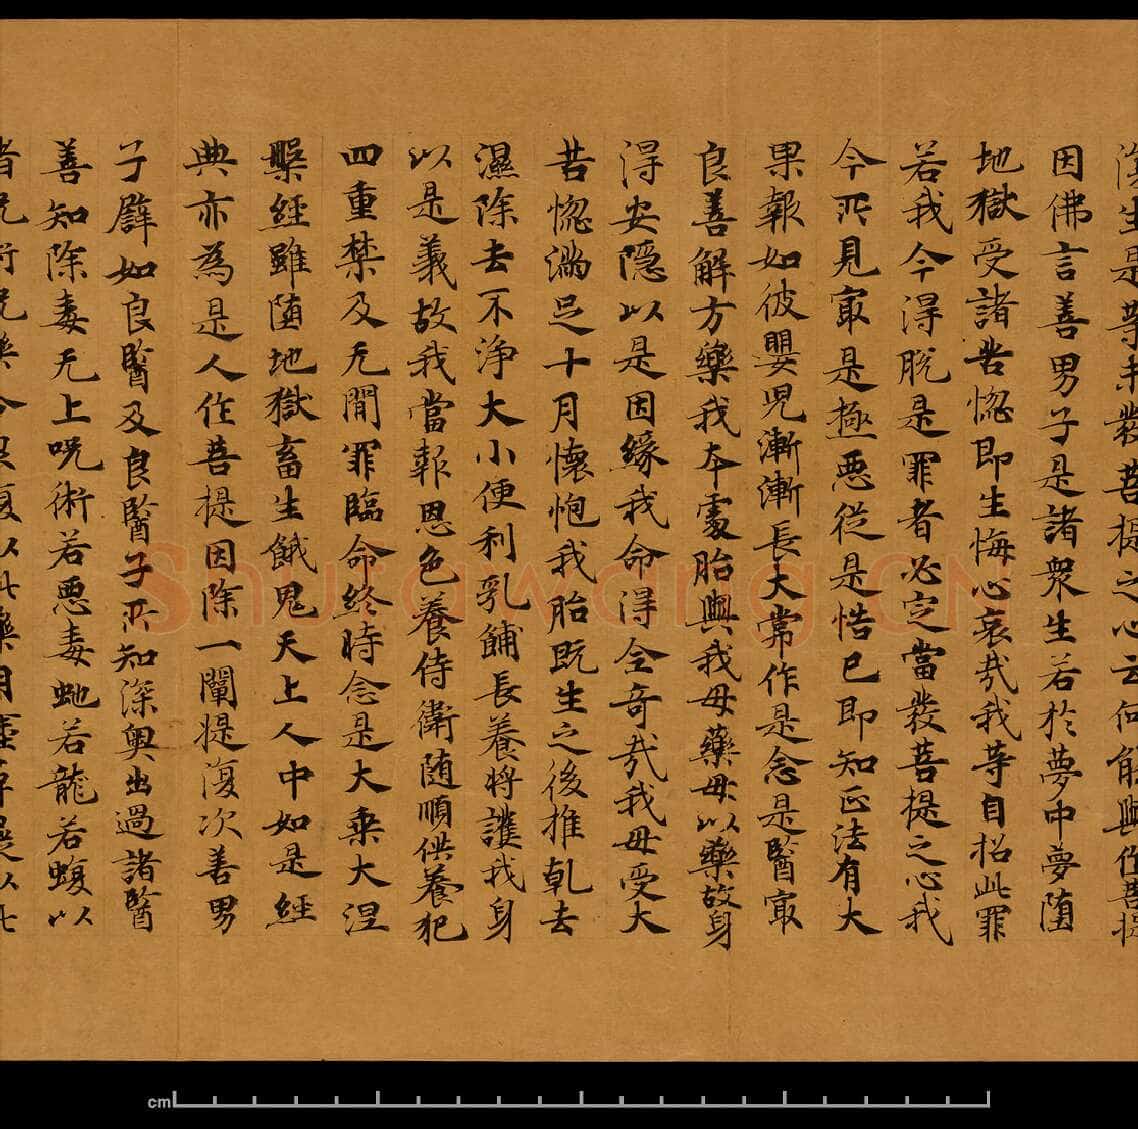 生是等未發菩提之心云何能與作菩提
因佛言善男子是諸衆生若於夢中夢墮
地獄受諸苦惱即生悔心哀㢤我等自招此罪
若我今得脫是罪者必定當發菩提之心我
今所見㝡是極惡從是悟已即知正法有大
果報如彼嬰兒漸漸長大常作是念是醫㝡
良善解方藥我本處胎與我母藥母以藥故身
得安隱以是因緣我命得全奇㢤我母受大
苦惱滿足十月懷抱我胎既生之後推乾去
濕除去不淨大小便利乳餔長養將護我身
以是義故我當報恩色養侍衛随順供養犯
四重禁及无間罪臨命終時念是大乘大涅
槃經雖墮地獄畜生餓鬼天上人中如是經
典亦為是人作菩提因除一闡提復次善男
子譬如良醫及良醫子所知深奧出過諸醫
善知除毒无上呪術若惡毒虵若龍若蝮以
cm
Shufawang.CN